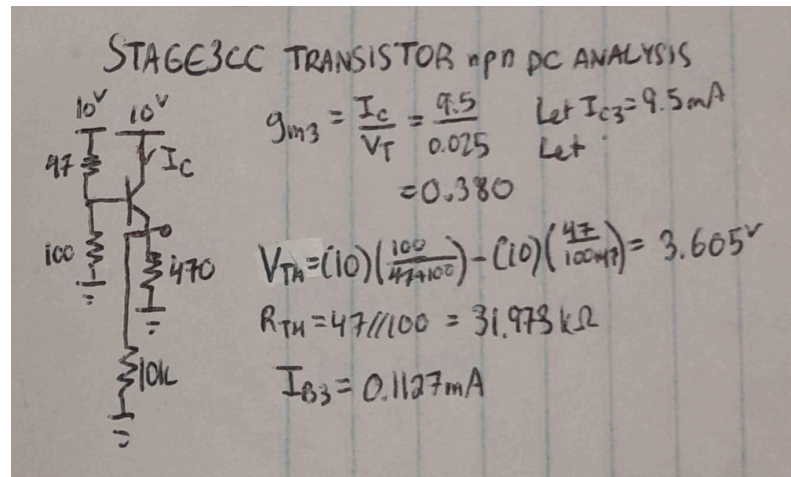 STAGE3CC TRANSISTOR npn DC ANALYSIS
10V 10V
47
IC
100
470
10k
gm3 = IC/VT = 9.5/0.025
= 0.380
Let IC3 = 9.5mA
Let
VTH = (10)(100/47+100) - (10)(47/100+47) = 3.605V
RTH = 47//100 = 31.973kΩ
IB3 = 0.1127mA